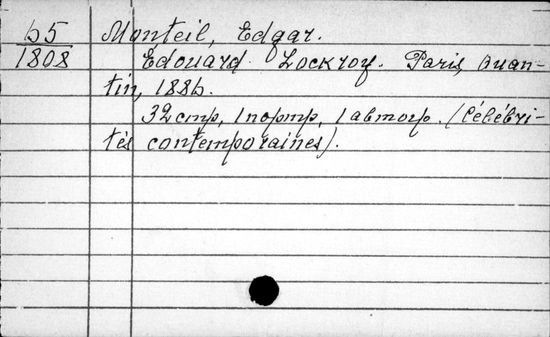 65
1808
Monteil, Edgar.
Édouard Lockroy. Paris, Quan-
tin, 1886.
32 стр, 1 портр, 1 автогр. (Célébri-
tés contemporaines).